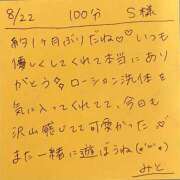 8/22 100分 S様
約1ヶ月ぶりだね♡♡いつも
優しくしてくれて本当にあり
がとう多ローション洗体を
気に入ってくれてて、今日も
沢山感じてて可愛かった
また一緒に遊ぼうね(o^^o)
みと